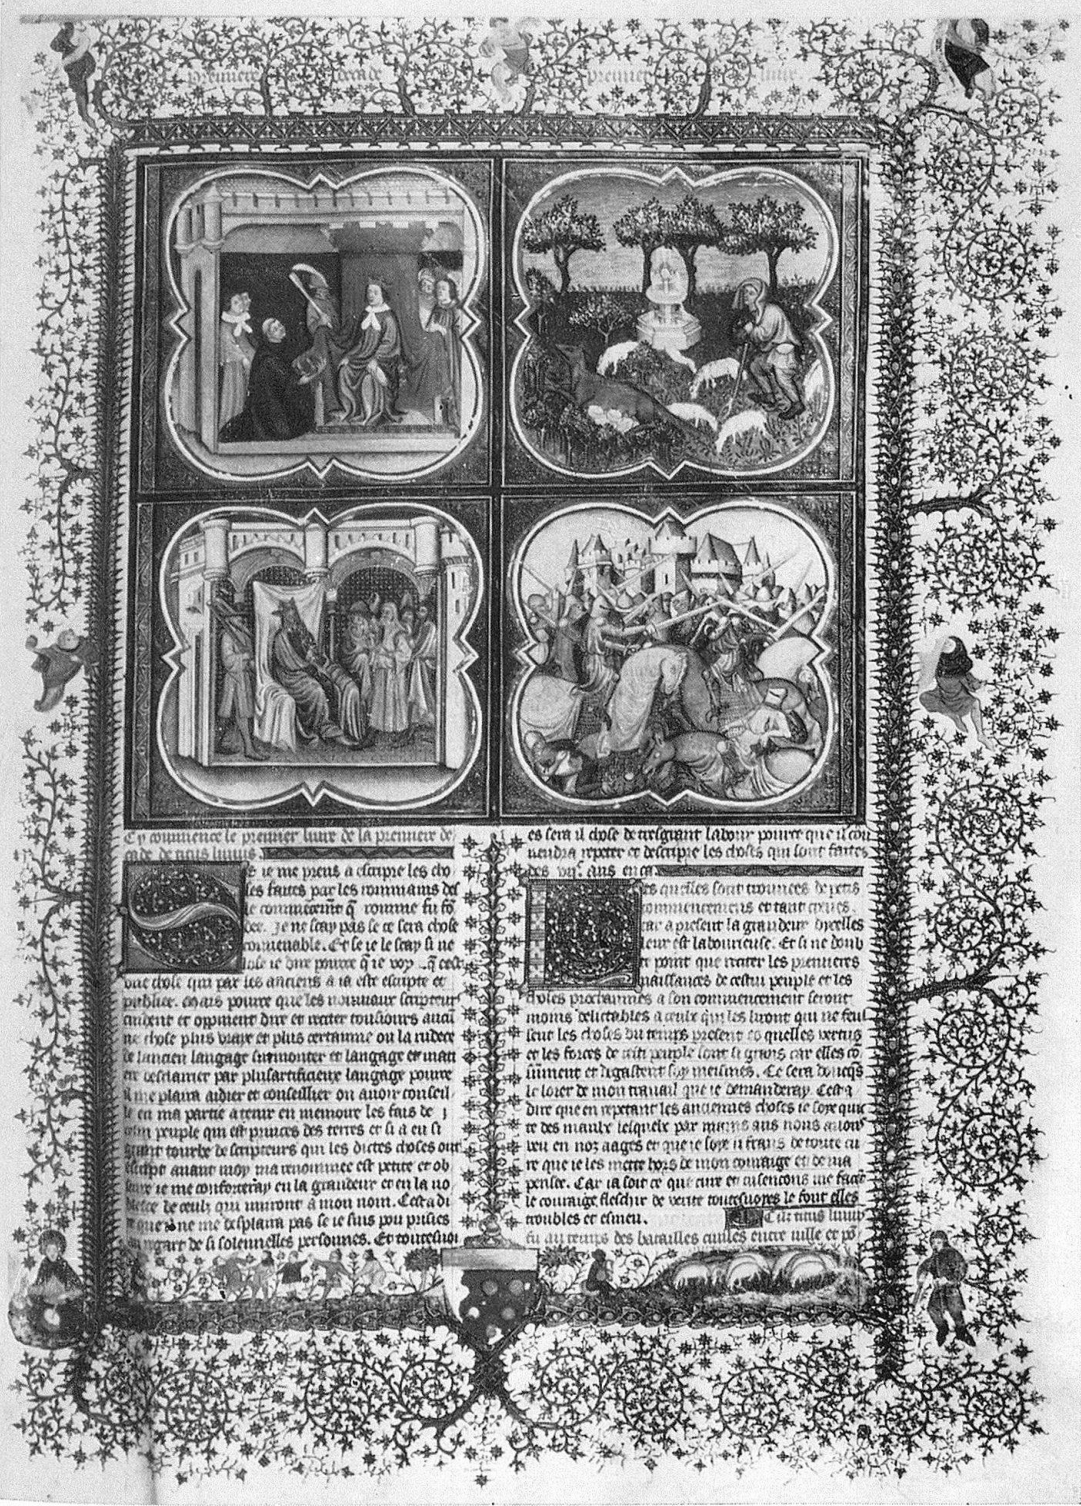 premiere decade premier livre
Cy commence le premier livre de la premiere de
cade de titus livius
Se ie me prens a escripre les cho
ses faites par les rommains des
le commencemt q̄ romme fu fō
dee. Je ne scay pas se ce sera chose
convenable. Et se ie le scay si ne
lose ie dire pource q̄ ie voy q̄ cest
une chose qui par les anciens a ia este escripte et
publiee. Mais pource que les nouviaux scripteurs
cuident et oppinent dire et reciter tousiours aucū
ne chose plus vraye et plus certainne ou la rudece
de lancien langage surmonter et langage et mani
ere desclairier par plus artificieux langage pource
il me plaira aidier et conseillier ou avoir conseil
le en ma partie a tenir en memoire les fais de
peuple qui est princes des terres et si a eu si
grant tourbe de scripteurs qui les dictes choses ont
escript avant moy ma renommee est petite et ob
scure ie me conforteray en la grandeur et en la no
blece de ceulz qui nuiront a mon nom. Cest a di
re que ne me desplaira pas se ie suis pou prisies
au regart de si solennelles personnes. Et toutesvoi
es sera il chose de tresgrant labour pource que il con
vendra repeter et descripre les choses qui sont faites
des vijc. ans en ca
tes quelles sont trouvees de petis
commencemens et tant
car a present la grandeur dycelles
leur est laboureuse. Et si ne doub
te point que reciter les premieres
naissances de cestui peuple et les
choses prochainnes a son commencement seront
moins delictables a ceulz qui les liront qui ne feul
sent les choses du temps present es quelles vertus
et les forces de cest peuple sont si grans car elles
et degastent soy meismes. Ce sera doncqs
le loier de mon travail que ie demanderay. Cest a
dire que en repetant les anciennes choses ie soye quit
te des maulx lesquelx par mains ans nous avons
veu en noz aages et que ie soye frans de toute cu
re que ie les mette hors de mon courage et de ma
pensee. Car ia soit ce que cure et cusencons me facent
le courage fleschir de verite toutesvoies le font elles
troubles et esmeu. Cil titus livius
fu au temps des batailles civiles entre iulle et po